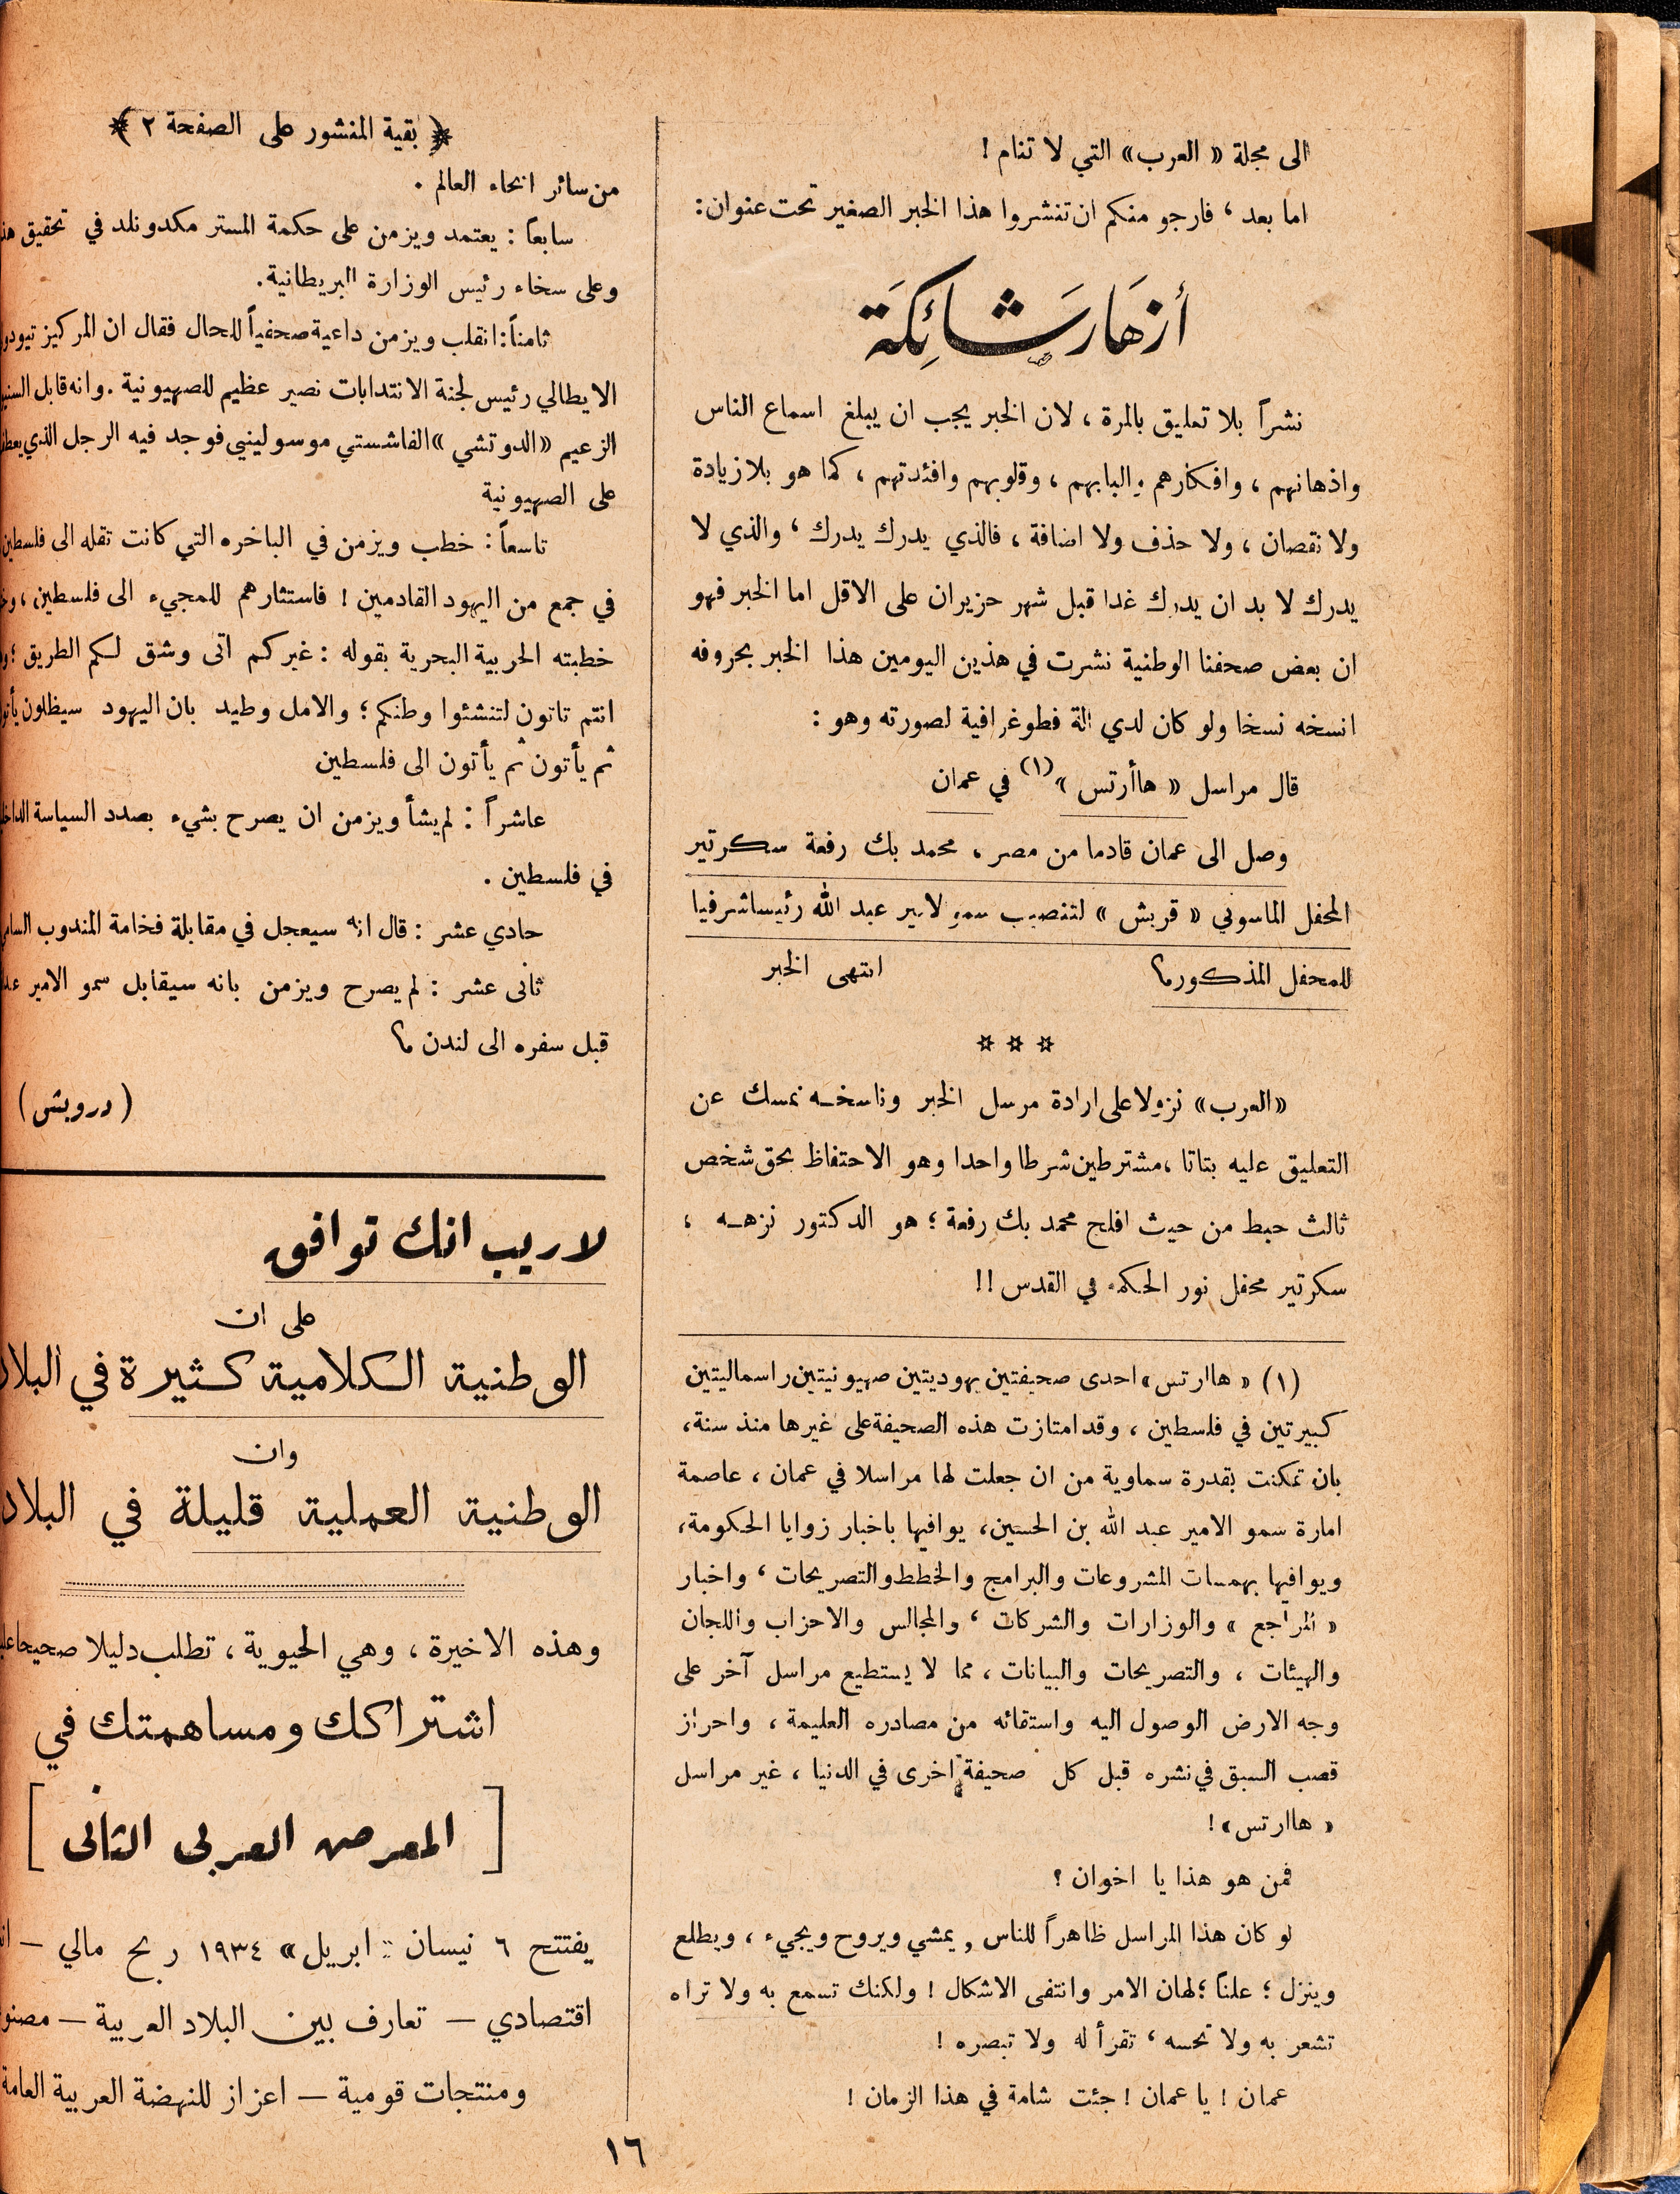 الى مجلة «العرب» التي لا تنام !
اما بعد ، فارجو منكم ان تنشروا هذا الخبر الصغير تحت عنوان :
أزهار شائكة
نشراً بلا تعليق بالمرة ، لان الخبر يجب ان يبلغ اسماع الناس
واذهانهم ، وافكارهم والبابهم ، وقلوبهم وافئدتهم ، كما هو بلا زيادة
ولا نقصان ، ولا حذف ولا اضافة ، فالذي يدرك يدرك ، والذي لا
يدرك لا بد ان يدرك غدا قبل شهر حزيران على الاقل اما الخبر فهو
ان بعض صحفنا الوطنية نشرت في هذين اليومين هذا الخبر بحروفه
انسخه نسخا ولو كان لدي الة فطوغرافية لصورته وهو :
قال مراسل « هاأرتس » (١) في عمان
وصل الى عمان قادما من مصر ، محمد بك رفعة سكرتير
المحفل الماسوني « قريش » لتنصيب سمو الامير عبد الله رئيسا شرفيا
للمحفل المذكور؟ انتهى الخبر
* * *
«العرب» نزولا على ارادة مرسل الخبر وناسخه نمسك عن
التعليق عليه بتاتا ، مشترطين شرطا واحدا وهو الاحتفاظ بحق شخص
ثالث حبط من حيث افلح محمد بك رفعة ؛ هو الدكتور نزهه ،
سكرتير محفل نور الحكمة في القدس !!
(١) « هاارتس » احدى صحيفتين يهوديتين صهيونيتين راسماليتين
كبيرتين في فلسطين ، وقد امتازت هذه الصحيفة على غيرها منذ سنة ،
بان تمكنت بقدرة سماوية من ان جعلت لها مراسلا في عمان ، عاصمة
امارة سمو الامير عبد الله بن الحسين ، يوافيها باخبار زوايا الحكومة ،
ويوافيها بهمسات المشروعات والبرامج والخطط والتصريحات ، واخبار
« المراجع » والوزارات والشركات ، والمجالس والاحزاب واللجان
والهيئات ، والتصريحات والبيانات ، مما لا يستطيع مراسل آخر على
وجه الارض الوصول اليه واستقائه من مصادره العليمة ، واحراز
قصب السبق في نشره قبل كل صحيفة اخرى في الدنيا ، غير مراسل
« هاارتس » !
فمن هو هذا يا اخوان ؟
لو كان هذا المراسل ظاهراً للناس ، يمشي ويروح ويجيء ، ويطلع
وينزل ؛ علنًا ؛ لهان الامر وانتفى الاشكال ! ولكنك تسمع به ولا تراه
تشعر به ولا تحسه ، تقرأ له ولا تبصره !
عمان ! يا عمان ! جئت شامة في هذا الزمان !
﴿ بقية المنشور على الصفحة ٢ ﴾
من سائر انحاء العالم .
سابعاً : يعتمد ويزمن على حكمة المستر مكدونلد في تحقيق
وعلى سخاء رئيس الوزارة البريطانية .
ثامناً : انقلب ويزمن داعية صحفياً للحال فقال ان المركيز
الايطالي رئيس لجنة الانتدابات نصير عظيم للصهيونية . وانه قابل
الزعيم «الدوتشي» الفاشستي موسوليني فوجد فيه الرجل الذي
على الصهيونية
تاسعاً : خطب ويزمن في الباخره التي كانت تقله الى فلسطين
في جمع من اليهود القادمين ! فاستثارهم للمجيء الى فلسطين ،
خطبته الحربية البحرية بقوله : غيركم اتى وشق لكم الطريق ؛
انتم تاتون لتنشئوا وطنكم ؛ والامل وطيد بان اليهود سيظلون يأتون
ثم يأتون ثم يأتون الى فلسطين
عاشراً : لم يشأ ويزمن ان يصرح بشيء بصدد السياسة
في فلسطين .
حادي عشر : قال انه سيعجل في مقابلة فخامة المندوب السامي
ثاني عشر : لم يصرح ويزمن بانه سيقابل سمو الامير
قبل سفره الى لندن ؟
( درويش )
لا ريب انك توافق
على ان
الوطنية الكلامية كثيرة في البلاد
وان
الوطنية العملية قليلة في البلاد
وهذه الاخيرة ، وهي الحيوية ، تطلب دليلا صحيحا
اشتراكك ومساهمتك في
[ المعرض العربي الثاني ]
يفتتح ٦ نيسان « ابريل » ١٩٣٤ ربح مالي –
اقتصادي – تعارف بين البلاد العربية –
ومنتجات قومية – اعزاز للنهضة العربية العامة
١٦